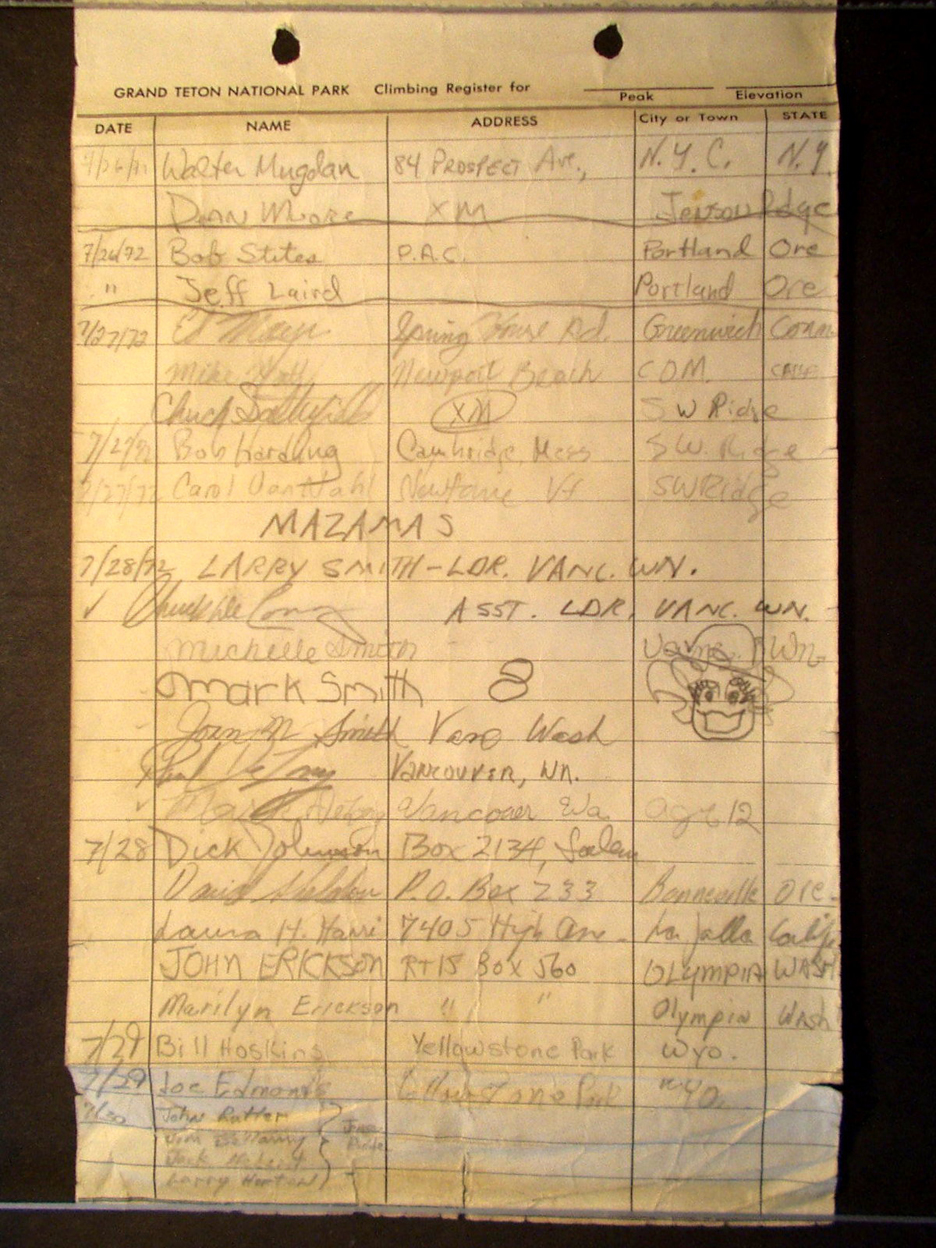 GRAND TETON NATIONAL PARK Climbing Register for
Peak Elevation
DATE NAME ADDRESS City or Town STATE
Walter Mugdan 84 PROSPECT AVE., N.Y.C. N.Y.
Dann Moore XM Jenson Ridge
7/26/72 Bob Stites P.A.C. Portland Ore
" Jeff Laird Portland Ore
7/27/72 Ed Spring House Rd. Greenwich Conn
Mike Newport Beach CDM. CALIF
Chuck XM SW Ridge
7/27/72 Bob Harding Cambridge, Mass SW. Ridge
7/27/72 Carol Newfane Vt SW Ridge
MAZAMAS
7/28/72 LARRY SMITH-LDR. VANC. WN.
✓ ASST. LDR. VANC. WN.
Michelle Smith Vanc. Wn.
Mark Smith 8
Joan M Smith Vanc Wash
VANCOUVER, WN.
Vancouver Wa. age 12
7/28 Dick Johnson Box 2134, Salem
David Sheldon P.O. Box 233 Bonneville Ore.
Laura H. Harri 7405 High Ave. La Jolla Calif
JOHN ERICKSON RT 15 BOX 560 OLYMPIA WASH
Marilyn Erickson " " Olympia Wash
7/29 Bill Hoskins Yellowstone Park Wyo.
7/29 Joe Edmonds Yellowstone Park Wyo.
7/30 John Rutter
Jim Bellamy
Jack
Larry Horton